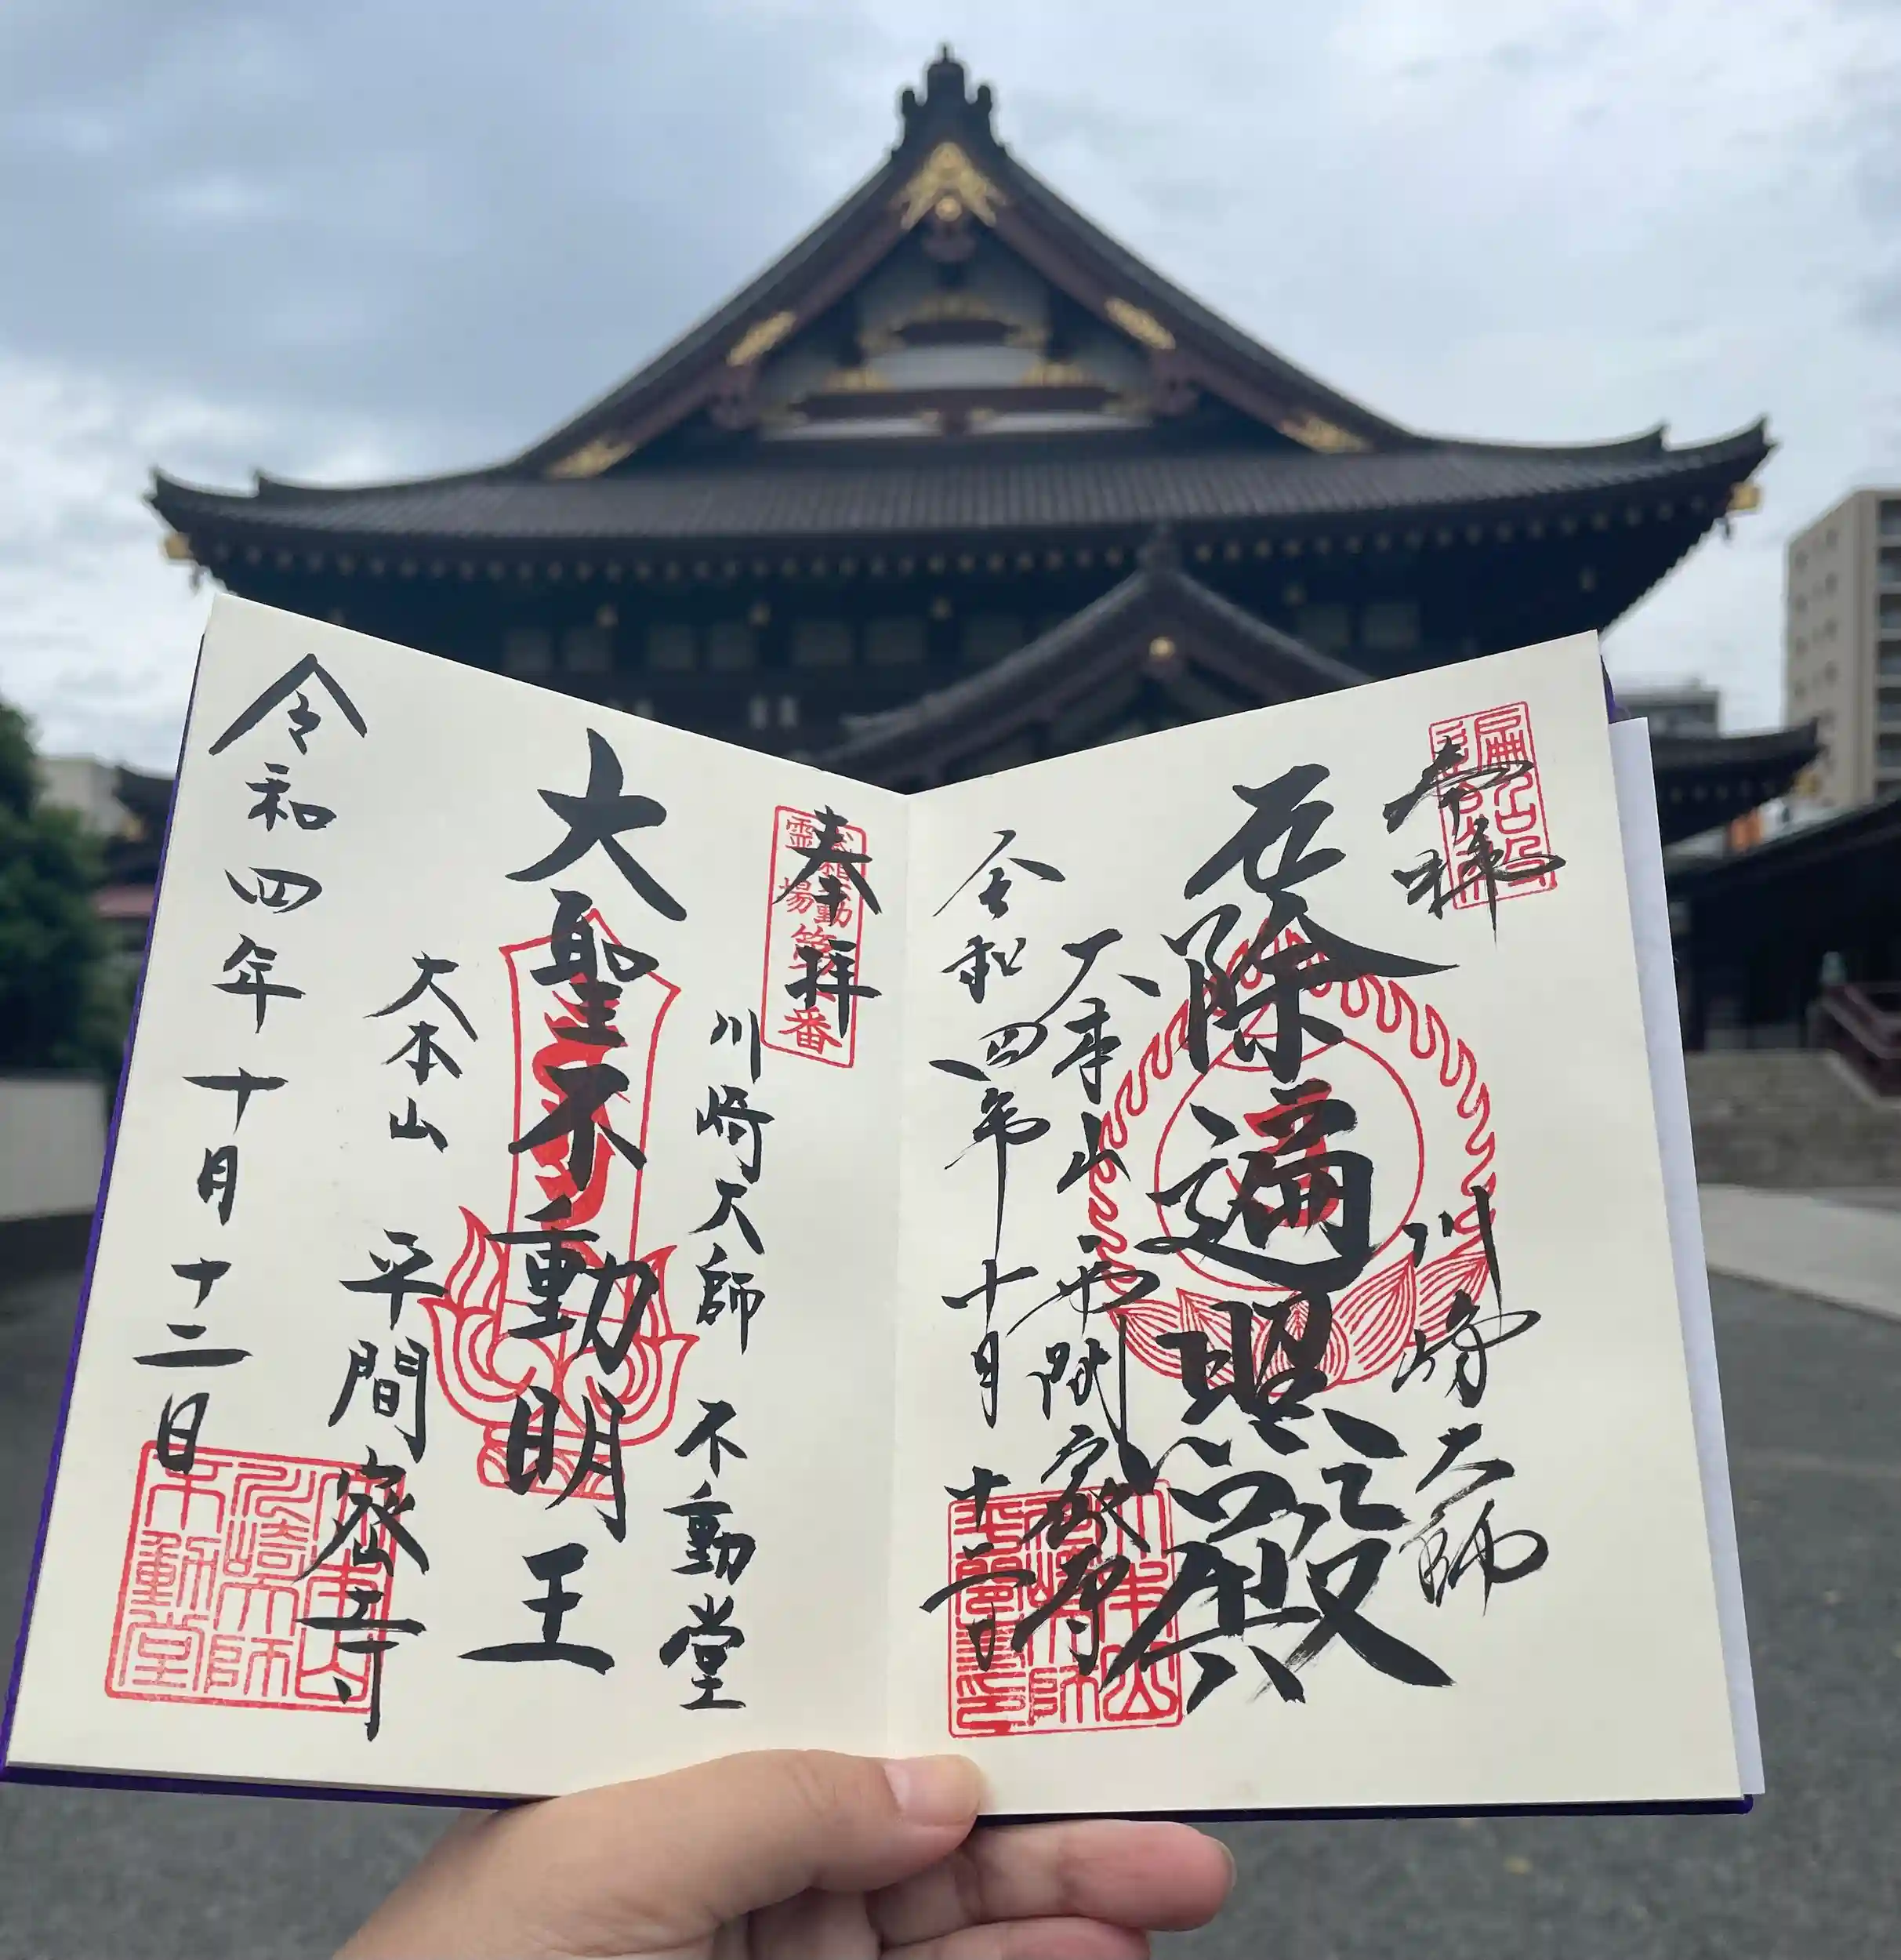 奉拝
川崎大師
厄除遍照殿
大本山 平間寺
令和四年十月十二日
奉拝
川崎大師 不動堂
大聖不動明王
大本山 平間密寺
令和四年十月十二日
大本山
川崎大師
不動堂